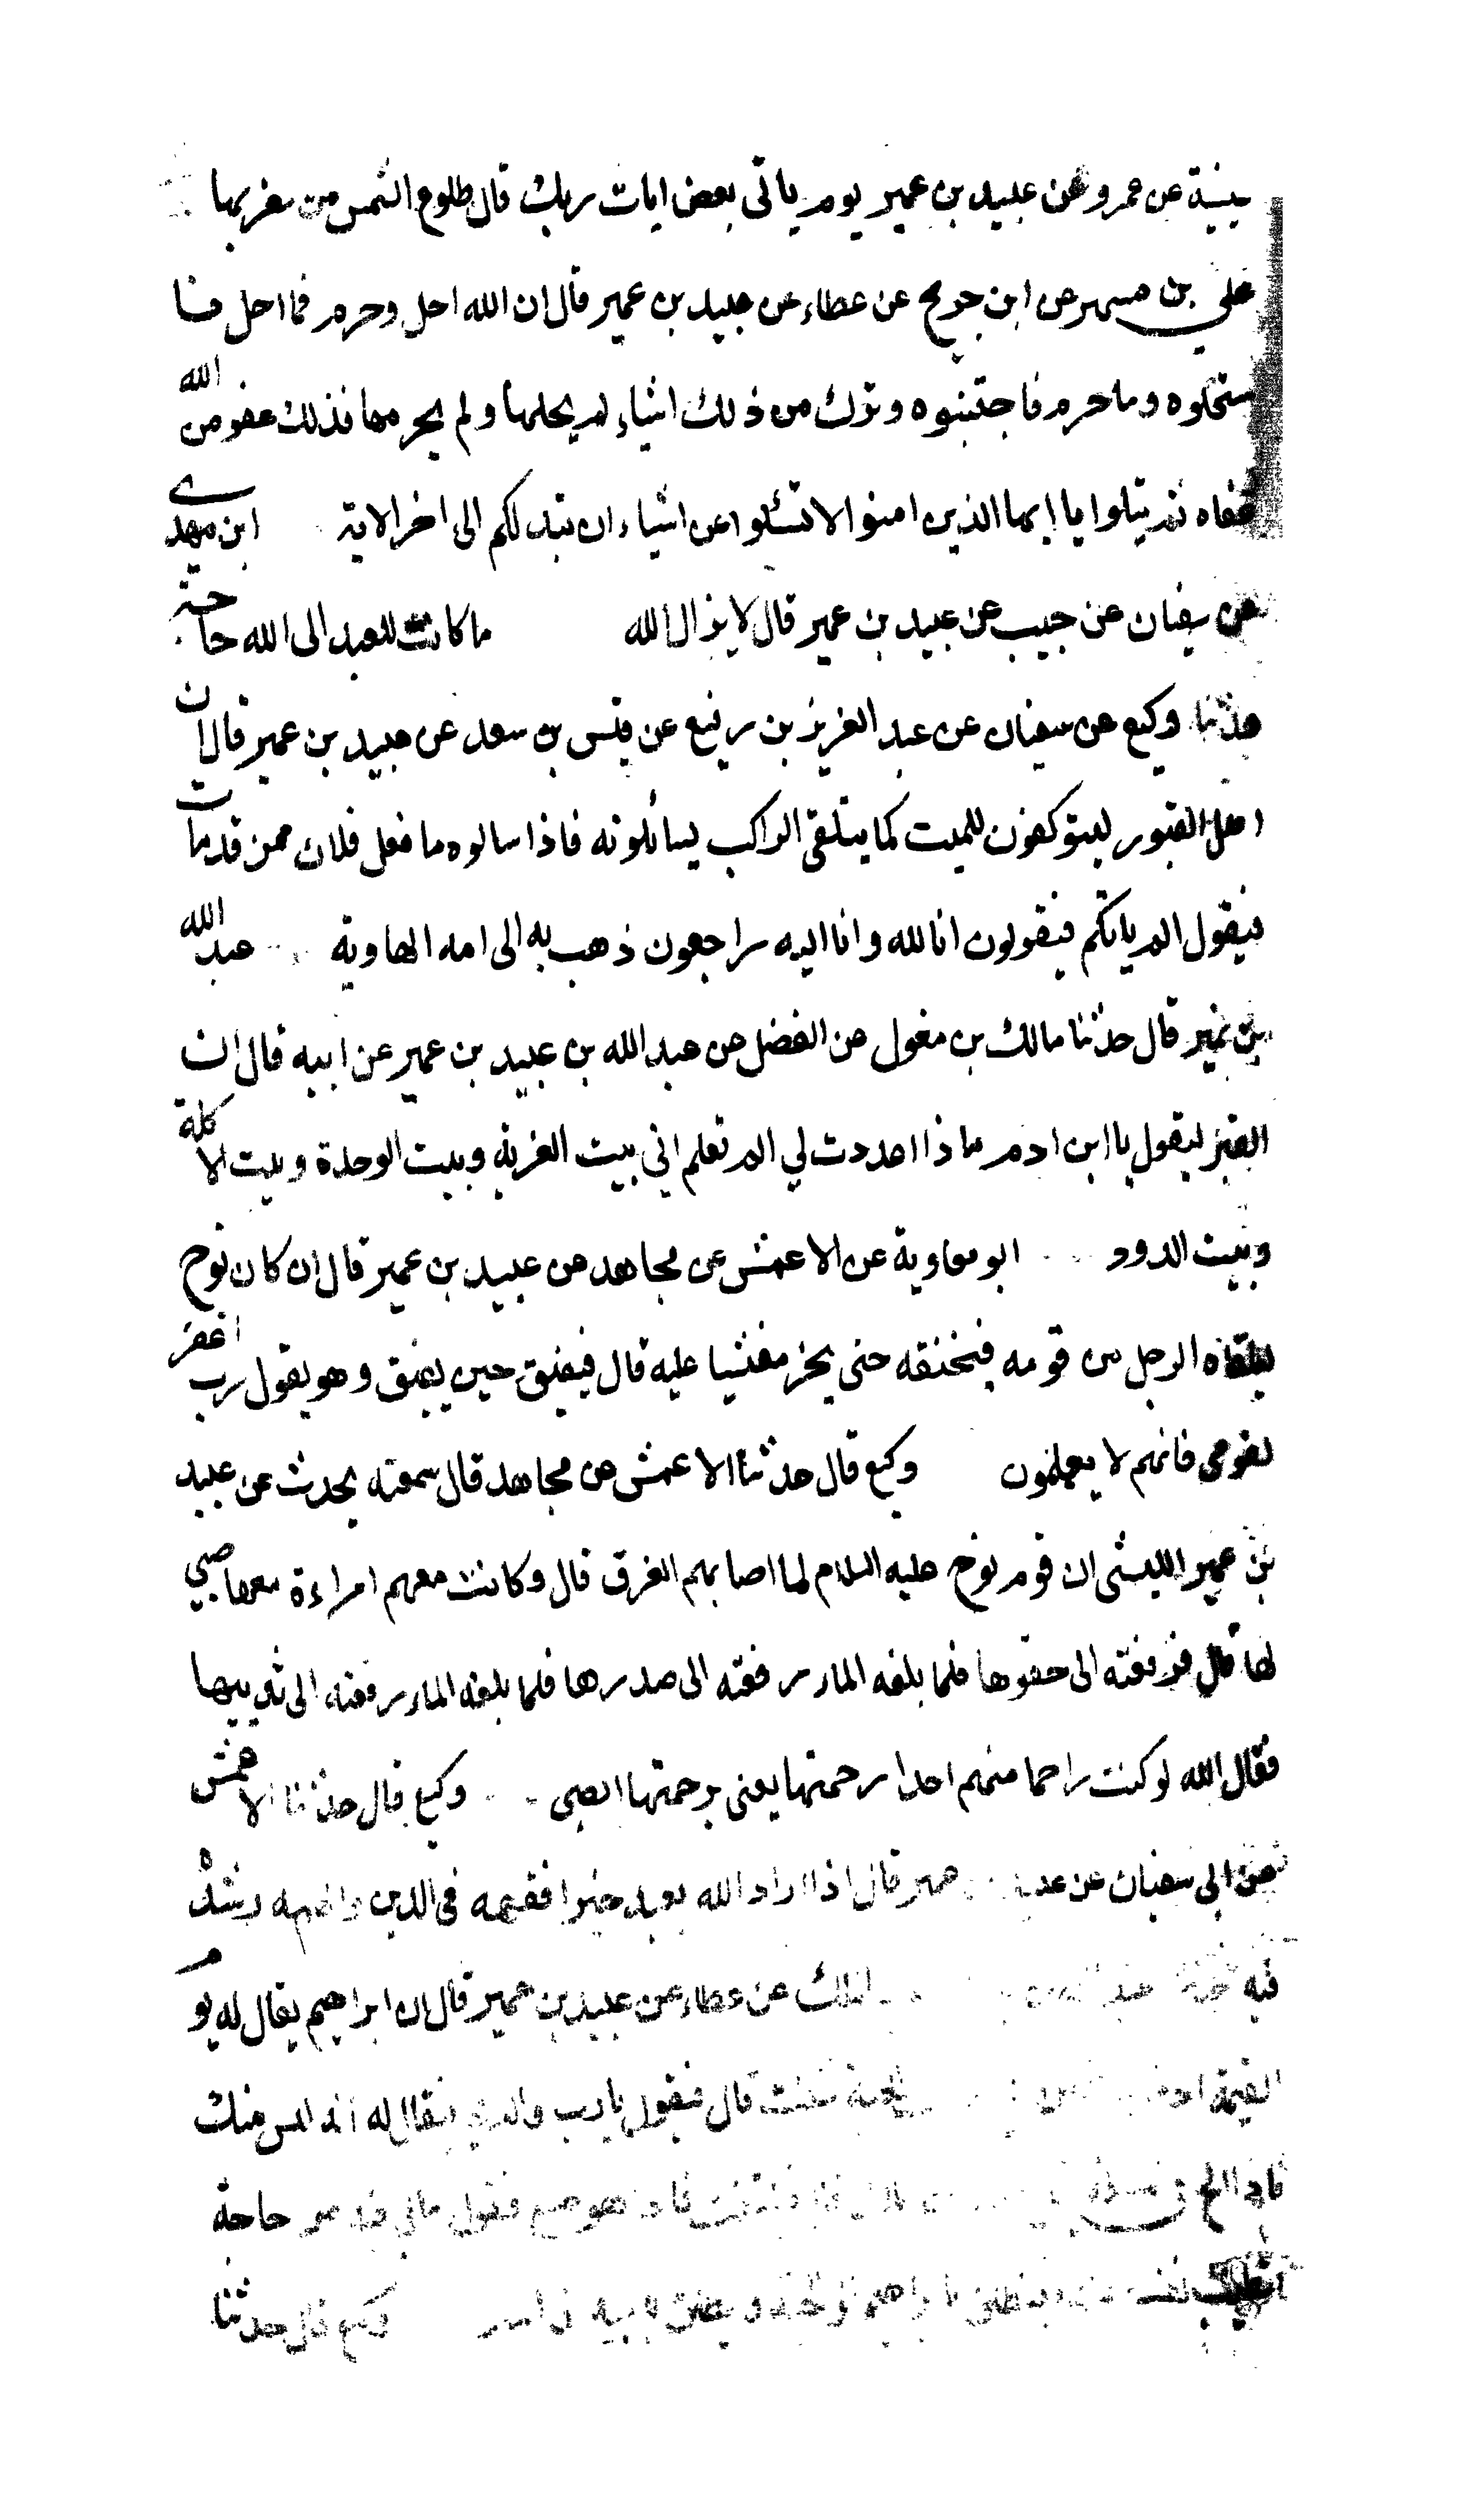 عيينة عن عمرو عن عبيد بن عمير يوم ياتى بعض ايات ربك قال طلوع الشمس من مغربها
علي بن مسهر عن ابن جريج عن عطاء عن عبيد بن عمير قال ان الله احل وحرم فما احل فا
ستحلوه وما حرم فاجتنبوه وترك من ذلك اشياء لم يحلها ولم يحرمها فذلك عفو من الله
عفاه ثم يتلوا يا ايها الذين امنوا لا تسئلوا عن اشياء ان تبد لكم الى اخر الاية ابن مهدي
عن سفيان عن حبيب عن عبيد بن عمير قال لا يزال الله ما كانت للعبد الى الله حاجته
حدثنا وكيع عن سفيان عن عبد العزيز بن رفيع عن قيس بن سعد عن عبيد بن عمير قال ان
اهل القبور ليتوكفون للميت كما يتلقى الراكب ليسائلونه فاذا سالوه ما فعل فلان ممن قد مات
فيقول الم ياتكم فيقولون انا لله وانا اليه راجعون ذهب به الى امه الهاوية عبد الله
بن نمير قال حدثنا مالك بن مغول عن الفضل عن عبد الله بن عبيد بن عمير عن ابيه قال ان
القبر ليقول يا ابن ادم ماذا اعددت لي الم تعلم اني بيت الغربة وبيت الوحدة وبيت الاكلة
وبيت الدود ابو معاوية عن الاعمش عن مجاهد عن عبيد بن عمير قال ان كان نوح
ليلقاه الرجل من قومه فيخنقه حتى يخر مغشيا عليه قال فيفيق حين يفيق وهو يقول رب اغفر
لقومي فانهم لا يعلمون وكيع قال حدثنا الاعمش عن مجاهد قال سمعته يحدث عن عبيد
بن عمير الليثي ان قوم نوح عليه السلام لما اصابهم الغرق قال وكانت معهم امراءة معها صبي
لها قال فرفعته الى حقوها فلما بلغه الماء رفعته الى صدرها فلما بلغه الماء رفعته الى ثدييها
فقال الله لو كنت راحما منهم احدا رحمتها يعني برحمتها الصبي وكيع قال حدثنا الاعمش
عن ابي سفيان عن عبيد عمير قال اذا اراد الله بعبد خيرا فقهه في الدين والهمه رشده
فيه الملك عن عطاء عن عبيد بن عمير قال ان ابراهيم يقال له يوم
القيمة الجنة شئت قال فيقول يا رب والدي فيقال له انه ليس منك
فاذا الح فاذا هو ضبع فيقول مالي فيه حاجة
وكيع قال حدثنا